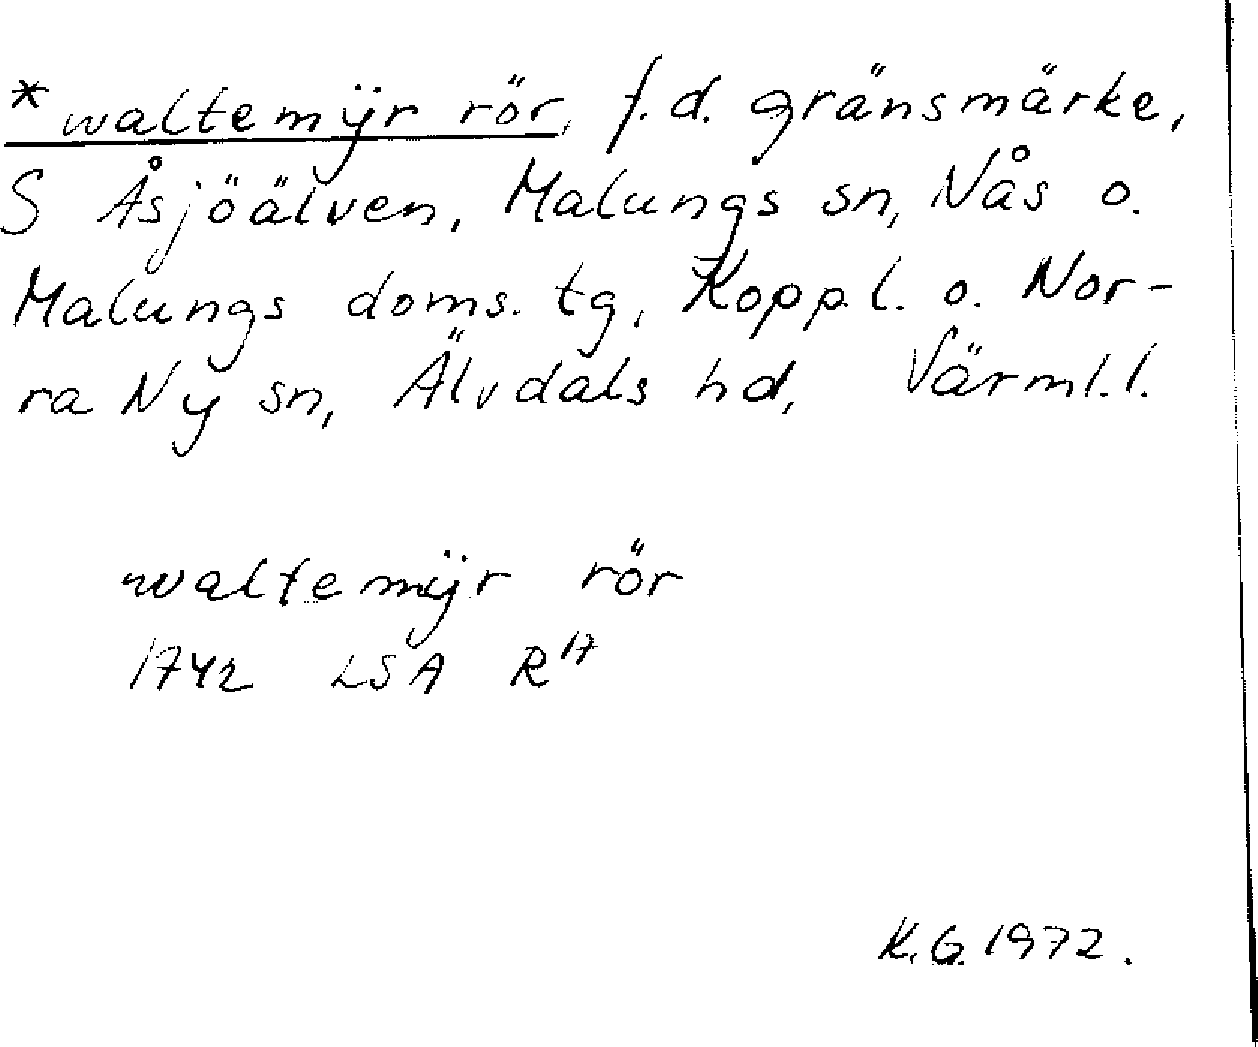 * waltemÿr rör, f.d. gränsmärke,
S Åsjöälven, Malungs sn, Nås o.
Malungs doms. tg, Koppl. o. Nor-
ra Ny sn, Älvdals hd, Värml.l.
waltemÿr rör
1742 LSA R 17
K.G. 1972.